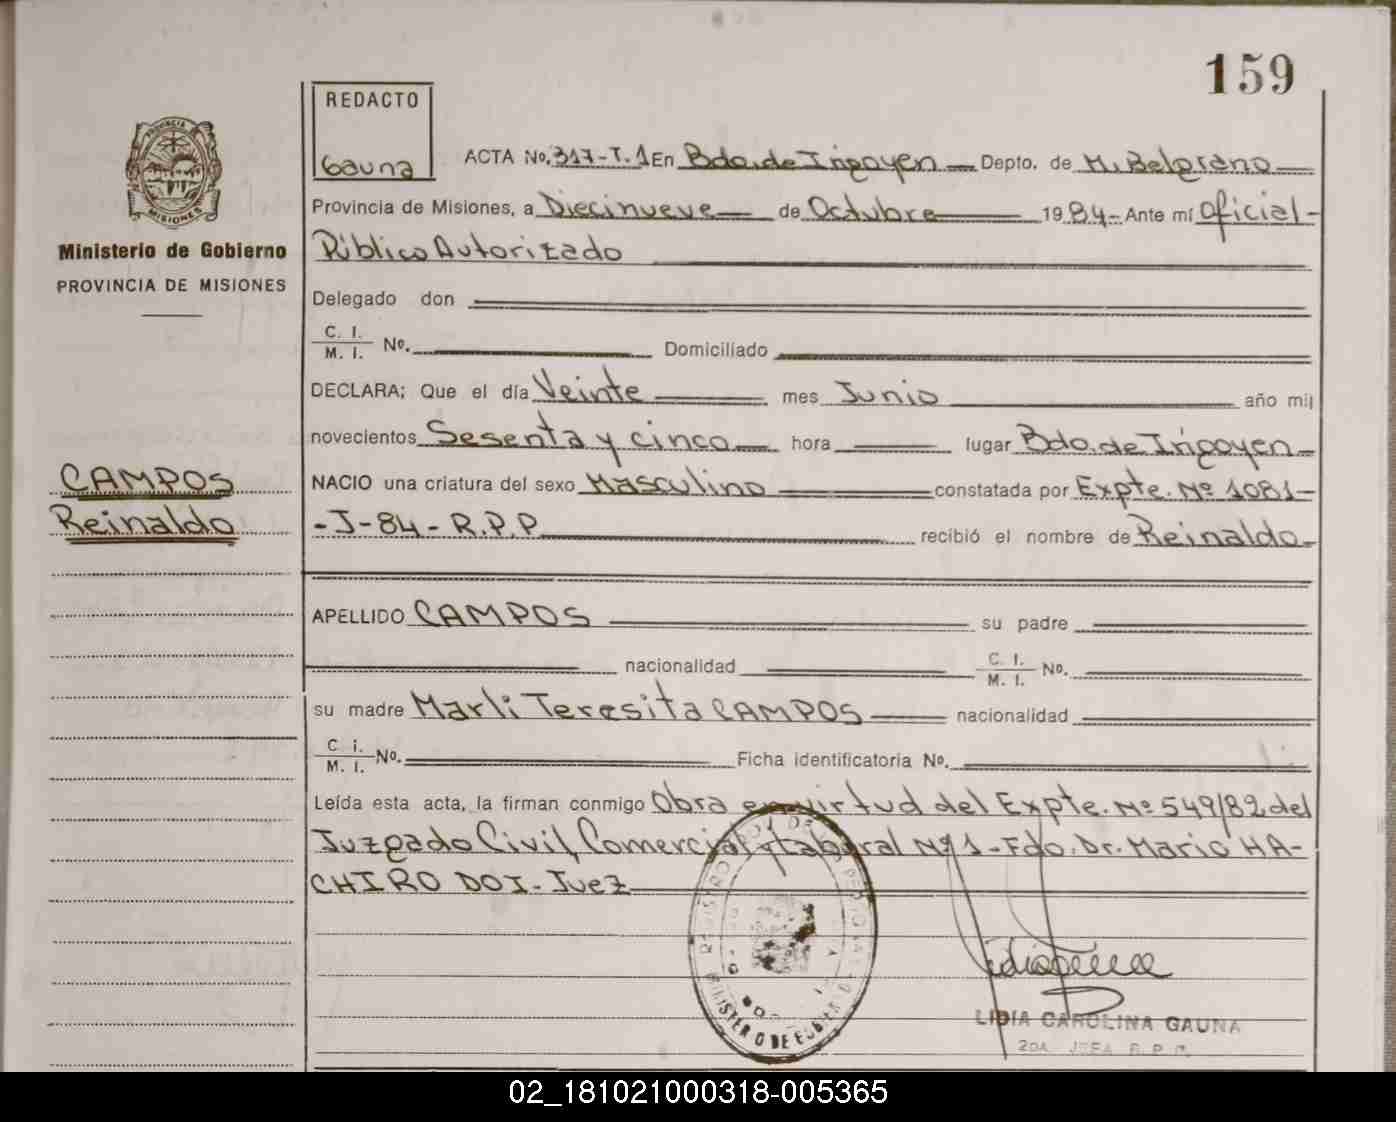 159
REDACTO
Gauna
ACTA No. 317-T.1 En Bdo. de Irigoyen Depto. de M. Belgrano
Provincia de Misiones, a Diecinueve de Octubre 1984- Ante mí Oficial-
Público Autorizado
PROVINCIA
MISIONES
Ministerio de Gobierno
PROVINCIA DE MISIONES
Delegado don
C. I.
M. I. No.
Domiciliado
DECLARA; Que el día Veinte mes Junio año mil
novecientos Sesenta y cinco hora lugar Bdo. de Irigoyen-
CAMPOS
Reinaldo
NACIO una criatura del sexo Masculino constatada por Expte. Nº 1081-
-J-84-R.P.P. recibió el nombre de Reinaldo-
APELLIDO CAMPOS su padre
nacionalidad C. I.
M. I. No.
su madre Marli Teresita CAMPOS nacionalidad
C. i.
M. I. No. Ficha identificatoria No.
Leída esta acta, la firman conmigo Obra en virtud del Expte. Nº 549/82 del
Juzgado Civil, Comercial y Laboral Nº 1-Fdo. Dr. Mario HA-
CHIRO DOI-Juez
MINISTERIO DE
LIDIA CAROLINA GAUNA
2DA. JEFA R. P.
02_181021000318-005365